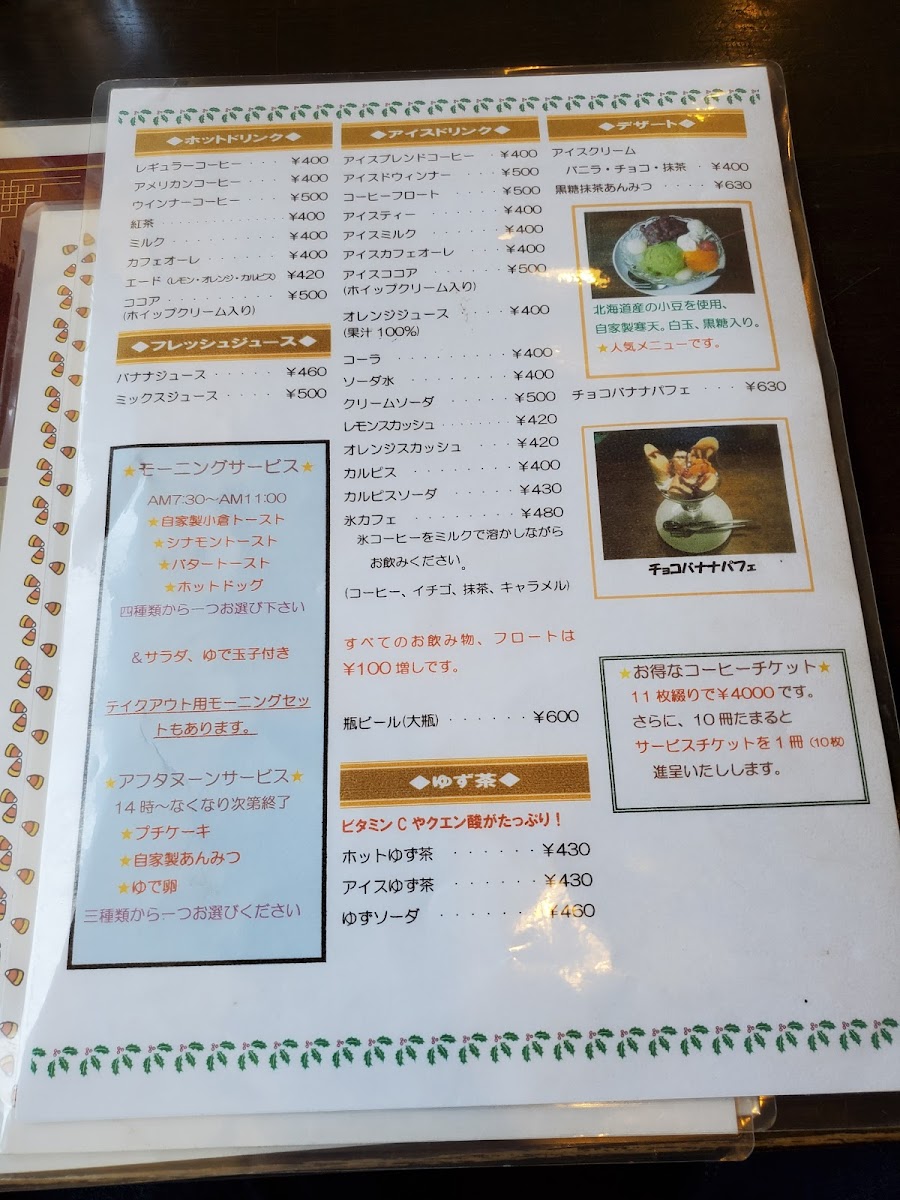 ◆ホットドリンク◆
レギュラーコーヒー ・・・ ¥400
アメリカンコーヒー ・・・ ¥400
ウインナーコーヒー ・・・ ¥500
紅茶 ・・・・・・・・・・ ¥400
ミルク ・・・・・・・・・ ¥400
カフェオーレ ・・・・・・ ¥400
エード(レモン・オレンジ・カルピス) ¥420
ココア ・・・・・・・・・ ¥500
(ホイップクリーム入り)
◆フレッシュジュース◆
バナナジュース ・・・・・ ¥460
ミックスジュース ・・・・・ ¥500
★モーニングサービス★
AM7:30~AM11:00
★自家製小倉トースト
★シナモントースト
★バタートースト
★ホットドッグ
四種類から一つお選び下さい
&サラダ、ゆで玉子付き
テイクアウト用モーニングセッ
トもあります。
★アフタヌーンサービス★
14時~なくなり次第終了
★プチケーキ
★自家製あんみつ
★ゆで卵
三種類から一つお選びください
◆アイスドリンク◆
アイスブレンドコーヒー ・ ¥400
アイスドウィンナー ・・・・ ¥500
コーヒーフロート ・・・・・ ¥500
アイスティー ・・・・・・・ ¥400
アイスミルク ・・・・・・・ ¥400
アイスカフェオーレ ・・・・ ¥400
アイスココア ・・・・・・・ ¥500
(ホイップクリーム入り)
オレンジジュース ・・・・・ ¥400
(果汁100%)
コーラ ・・・・・・・・・ ¥400
ソーダ水 ・・・・・・・・ ¥400
クリームソーダ ・・・・・・ ¥500
レモンスカッシュ ・・・・・・・・ ¥420
オレンジスカッシュ ・・・ ¥420
カルピス ・・・・・・・・ ¥400
カルピスソーダ ・・・・・・ ¥430
氷カフェ ・・・・・・・・ ¥480
氷コーヒーをミルクで溶かしながら
お飲みください。
(コーヒー、イチゴ、抹茶、キャラメル)
すべてのお飲み物、フロートは
¥100増しです。
瓶ビール(大瓶) ・・・・・・ ¥600
◆ゆず茶◆
ビタミンCやクエン酸がたっぷり!
ホットゆず茶 ・・・・・・ ¥430
アイスゆず茶 ・・・・・・ ¥430
ゆずソーダ ・・・・・・・ ¥460
◆デザート◆
アイスクリーム
バニラ・チョコ・抹茶 ・ ¥400
黒糖抹茶あんみつ ・・・・・ ¥630
北海道産の小豆を使用、
自家製寒天。白玉、黒糖入り。
★人気メニューです。
チョコバナナパフェ ・・・ ¥630
チョコバナナパフェ
★お得なコーヒーチケット★
11枚綴りで¥4000です。
さらに、10冊たまると
サービスチケットを1冊(10枚)
進呈いたしします。